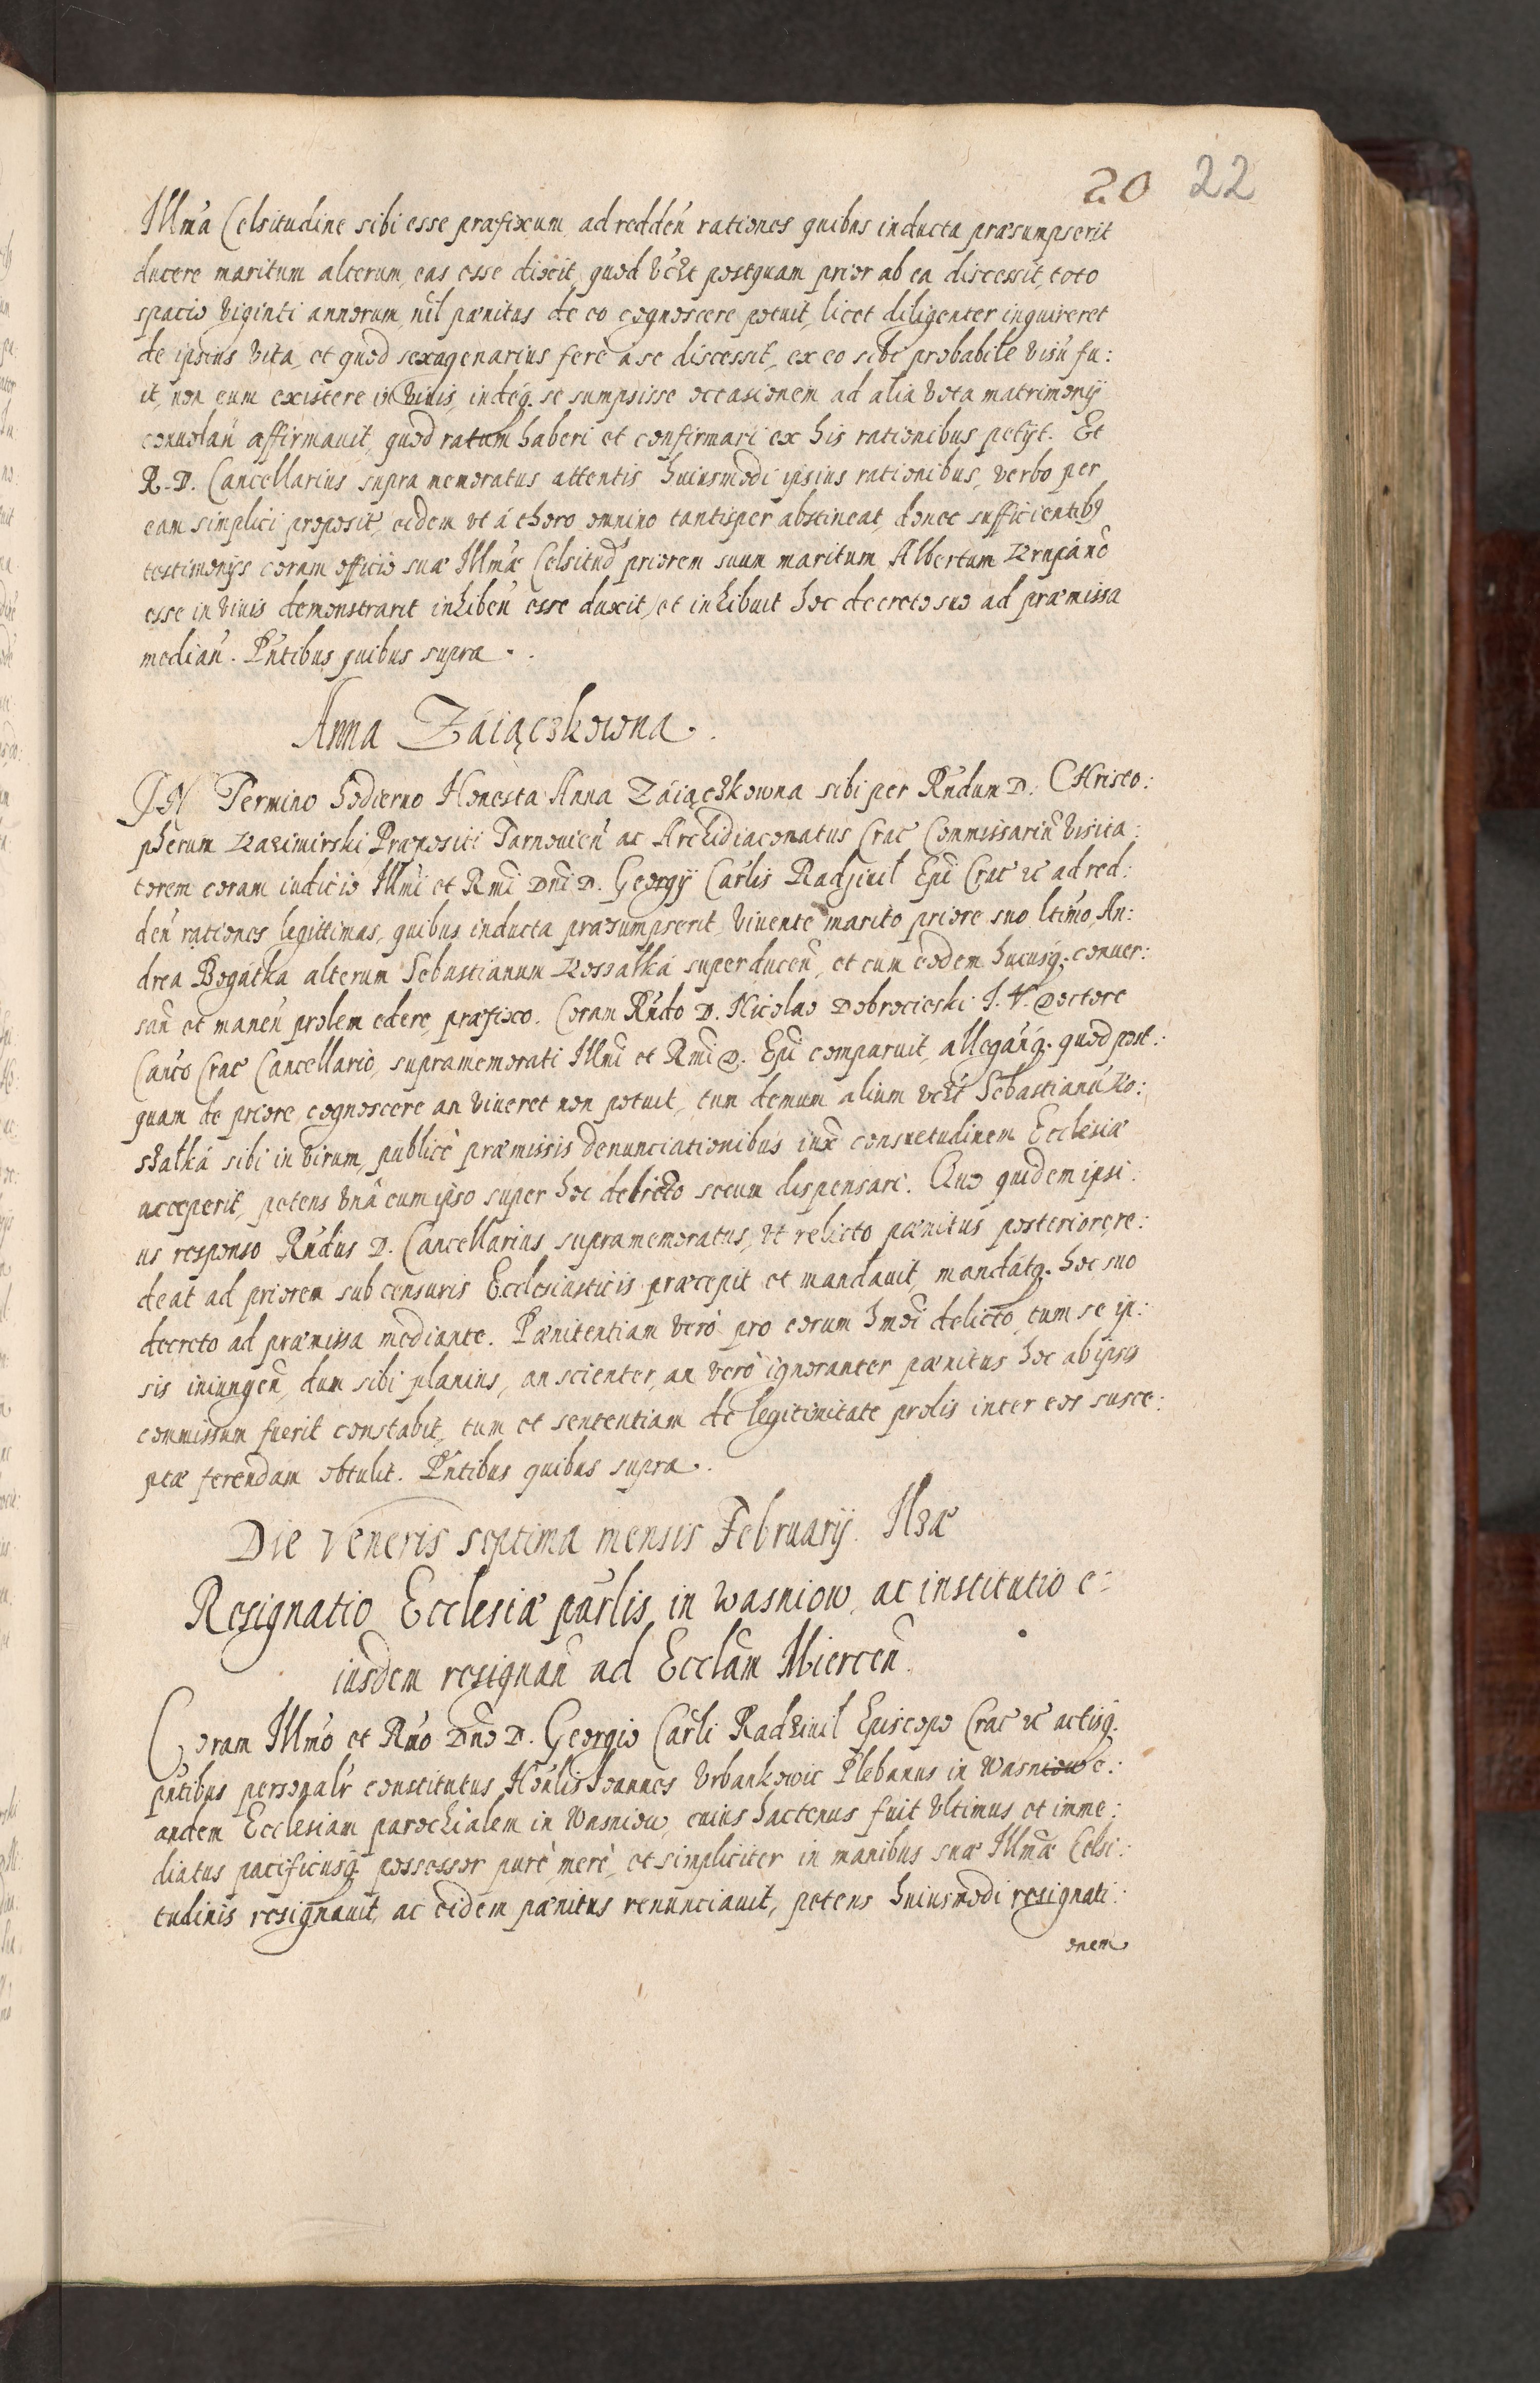 20 22
Illmā Celsitudine sibi esse præfixum, ad redden̄ rationes quibus inducta præsumpserit
ducere maritum alterum, eas esse dixit, quod vcꝫt postquam prior ab ea discessit, toto
spacio viginti annorum, nil pænitus de eo cognoscere potuit, licet diligenter inquireret
de ipsius vita, et quod sexagenarius fere a se discessit, ex eo sibi probabile visū fu:
it, non eum existere in viuis, indéq. se sumpsisse occasionem ad alia vota matrimonij
conuolan̄ affirmauit, quod ratum haberi et confirmari ex his rationibus petijt. Et
R. D. Cancellarius supra memoratus attentis huiusmodi ipsius rationibus, verbo per
eam simplici proposit, eidem vt á thoro omnino tantisper abstineat, donec sufficientibꝰ
testimonijs coram officio suæ Illmæ Celsitud priorem suum maritum Albertum Krupáno
esse in viuis demonstrarit inhiben̄ esse duxit, et inhibuit hoc decreto suo ad præmissa
median̄. Pn̄tibus quibus supra.
Anna Záiączkowna.
IN Termino hodierno Honesta Anna Záiączkowna sibi per Rn̄dum D. CHristo:
pherum Kazimirski Præpositi Tarnouien̄ ac Archidiaconatus Crac̄ Commissariū Visita:
torem coram iudicio Illmi et Rmi Dn̄i D. Georgij Car̄lis Radziuil Ep̄i Crac̄ ꝛc̄ ad red:
den̄ rationes legittimas, quibus inducta præsumpserit, viuente marito priore suo l̄timo, An:
drea Bogátka alterum Sebastianum Kossałká superducen̄, et cum eodem hucusq; conuer:
san̄ et manen̄ prolem edere, præfixo. Coram Rn̄do D. Nicolao Dobrocieski I. V. Doctore
Can̄co Crac̄ Cancellario, supramemorati Illmi et Rmi D. Ep̄i comparuit, allegan̄q. quod post:
quam de priore, cognoscere an viueret non potuit, tum demum alium vcꝫt Sebastianū Ko:
szałká sibi in virum, publicè præmissis denunciationibus iux̄ consuetudinem Ecclesiæ
acceperit, petens vnâ cum ipso super hoc delicto secum dispensari. Quo quidem ipsi:
us responso Rn̄dus D. Cancellarius supramemoratus, vt relicto pænitus posteriore, re:
deat ad priorem sub censuris Ecclesiasticis præcepit et mandauit, mandátq. hoc suo
decreto ad præmissa mediante. Pænitentiam verò pro eorum hmōi delicto, tum se ip:
sis iniungen̄, dum sibi planius, an scienter, an verò ignoranter pænitus hoc ab ipsis
commissum fuerit constabit, tum et sententiam de legitimitate prolis inter eos susce:
ptæ ferendam obtulit. Pn̄tibus quibus supra.
Die Veneris septima mensis Februarij. Ilzæ
Resignatio Ecclesiæ par̄lis in Wasniow, ac institutio e:
iusdem resignan̄ ad Eccl̄am Miercen̄.
Coram Illmo et Rmo Dn̄o D. Georgio Car̄li Radziuil Episcopo Crac̄ ꝛc̄ actisq.
pn̄tibus personalr̄ constitutus Hon̄lis Ioannes Vrbankowic Plebanus in Wasniow e:
andem Ecclesiam parochialem in Wasniow, cuius hactenus fuit vltimus et imme:
diatus pacificusq. possessor purè, merè, et simpliciter in manibus suæ Illmæ Celsi:
tudinis resignauit, ac eidem pænitus renunciauit, petens huiusmodi resignati:
onem